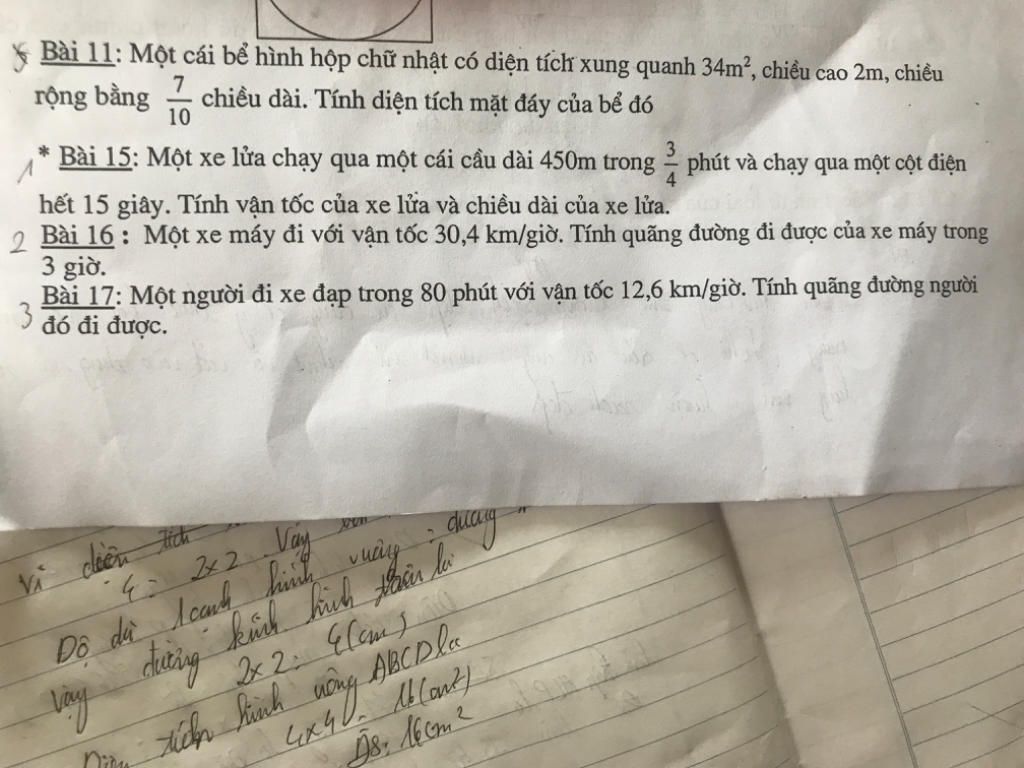 5 Bài 11: Một cái bể hình hộp chữ nhật có diện tích xung quanh 34m², chiều cao 2m, chiều
rộng bằng 7/10 chiều dài. Tính diện tích mặt đáy của bể đó
1 * Bài 15: Một xe lửa chạy qua một cái cầu dài 450m trong 3/4 phút và chạy qua một cột điện
hết 15 giây. Tính vận tốc của xe lửa và chiều dài của xe lửa.
2 Bài 16 : Một xe máy đi với vận tốc 30,4 km/giờ. Tính quãng đường đi được của xe máy trong
3 giờ.
3 Bài 17: Một người đi xe đạp trong 80 phút với vận tốc 12,6 km/giờ. Tính quãng đường người
đó đi được.
Vì diện tích
4 = 2x2 Vậy
Độ dài 1 cạnh hình vuông = đường
Vậy đường kính hình tròn là
2x2= 4(cm)
hình vuông ABCD là
4x4= 16(cm²)
Đs: 16cm²